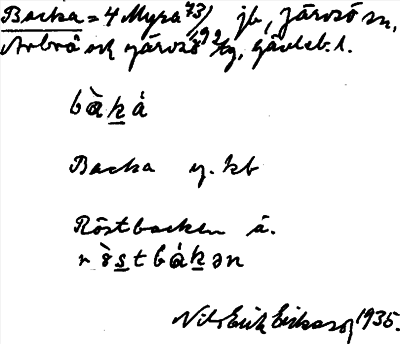 Backa = 4 Myra 73/ jb, Järvsö sn,
Arbrå och Järvsö 192 tg, Gävleb. l.
bàká̠
Backa g. kb
Röstbacken ä.
rö̀s̠tbák̠ən
Nils Erik Eriksson 1935.